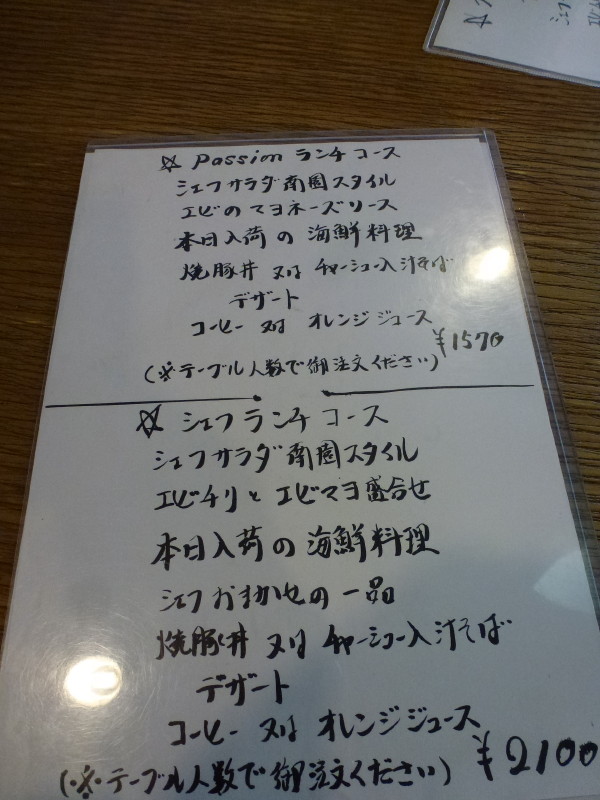 ☆ Passion ランチコース
シェフサラダ南国スタイル
エビのマヨネーズソース
本日入荷の海鮮料理
焼豚丼 又は チャーシュー入汁そば
デザート
コーヒー 又は オレンジジュース
¥1570
(※テーブル人数で御注文ください)
☆ シェフランチコース
シェフサラダ南国スタイル
エビチリとエビマヨ盛合せ
本日入荷の海鮮料理
シェフおまかせの一品
焼豚丼 又は チャーシュー入汁そば
デザート
コーヒー 又は オレンジジュース
¥2100
(※テーブル人数で御注文ください)